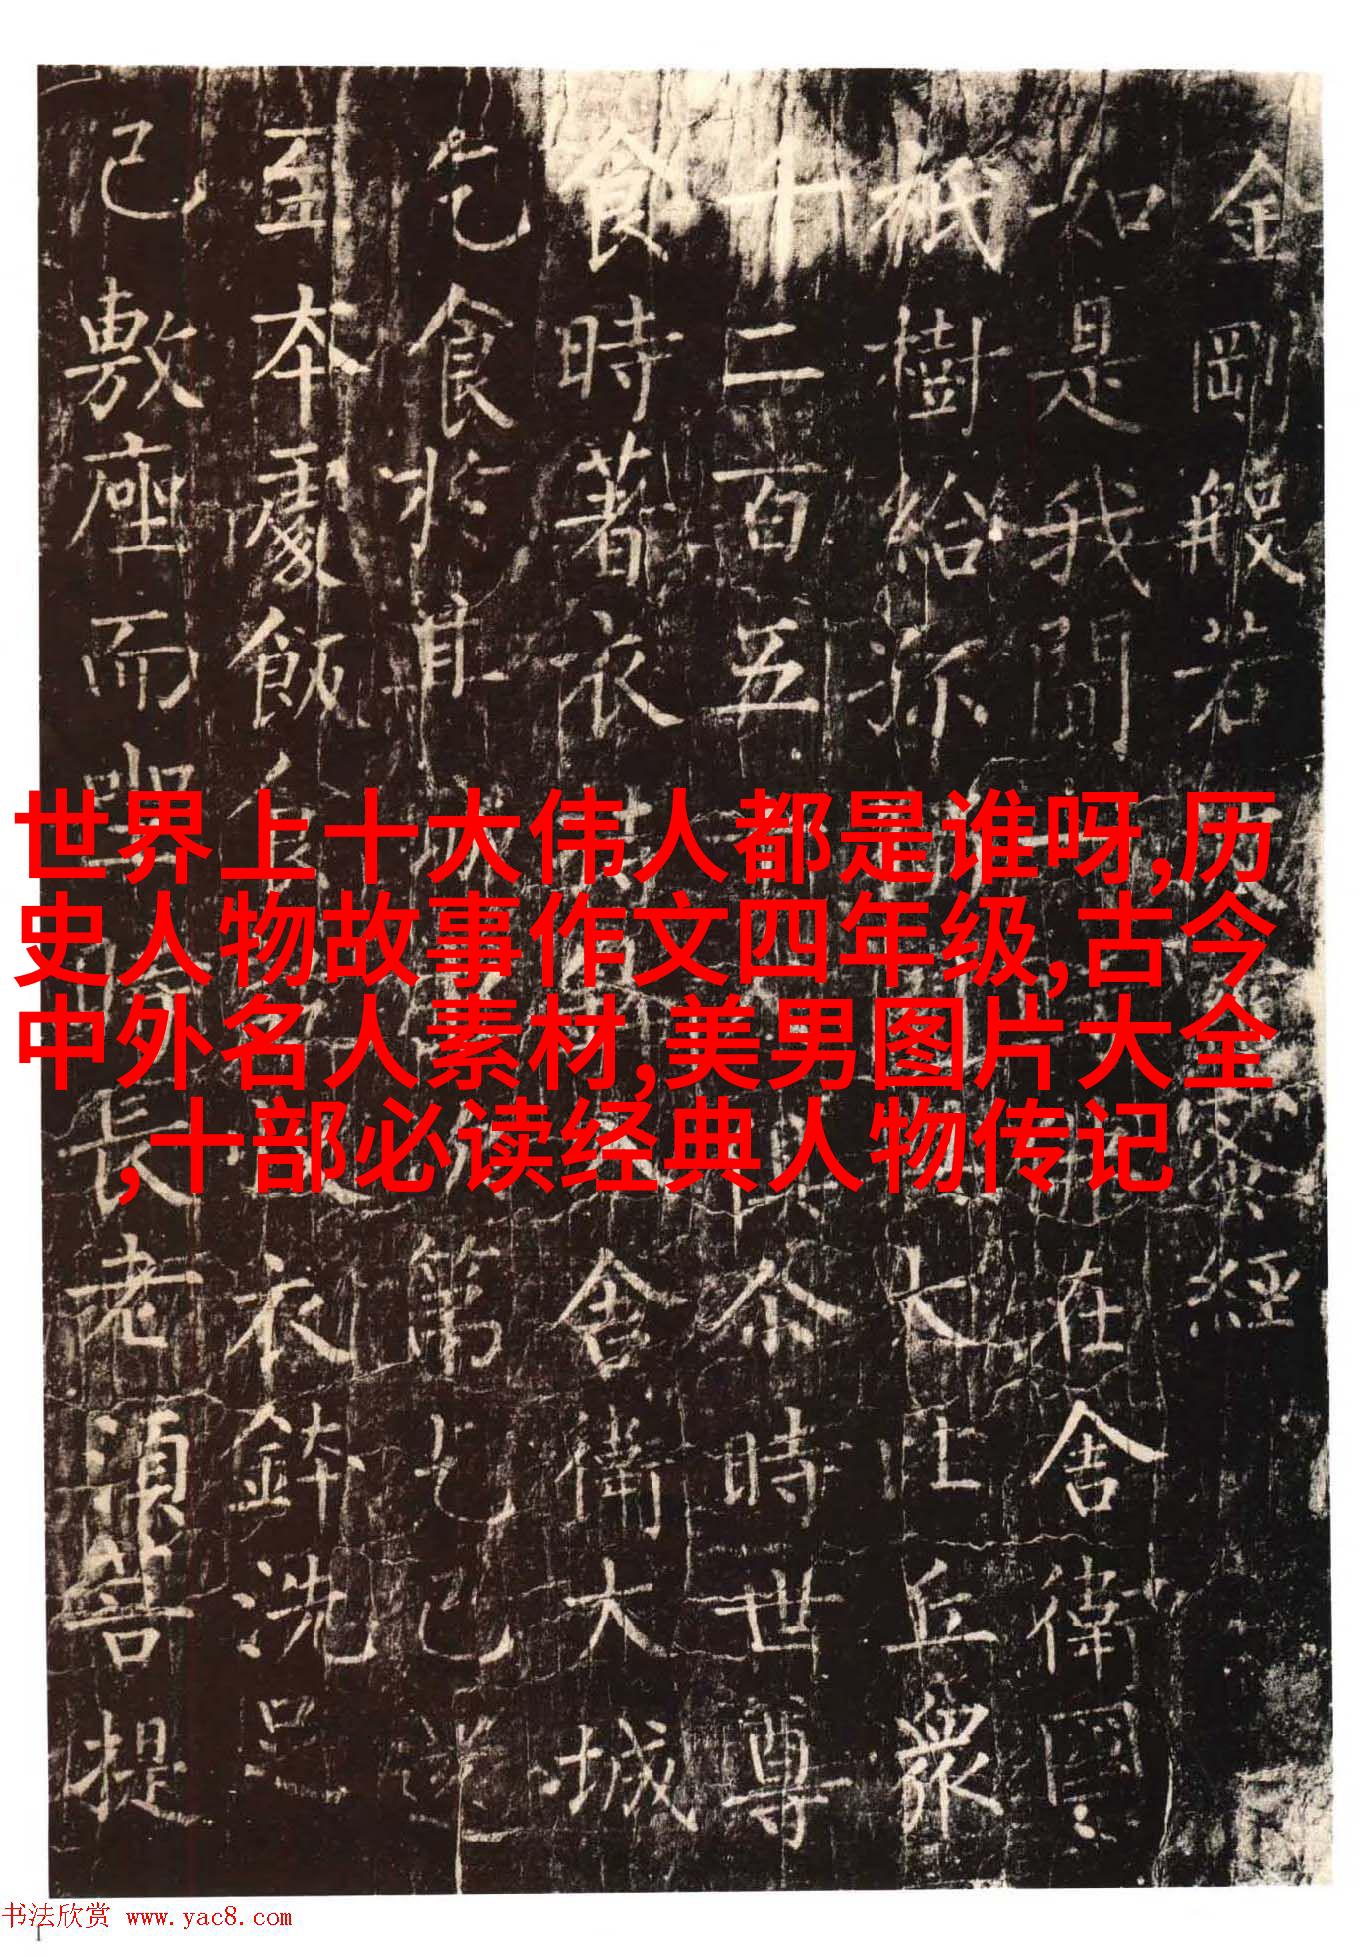 金剛般若
經
如是我聞
在舍衛國
祇樹給
大比丘眾
十二百五
尒時世尊
食時著衣
舍衛大城
乞食於其
第乞已還
至本處飯食
衣鉢洗足
已敷座而坐時長老須菩提
世界上十大伟人都是谁呀,历
史人物故事作文四年级,古今
中外名人素材,美男图片大全
,十部必读经典人物传记
书法欣赏 www.yac8.com